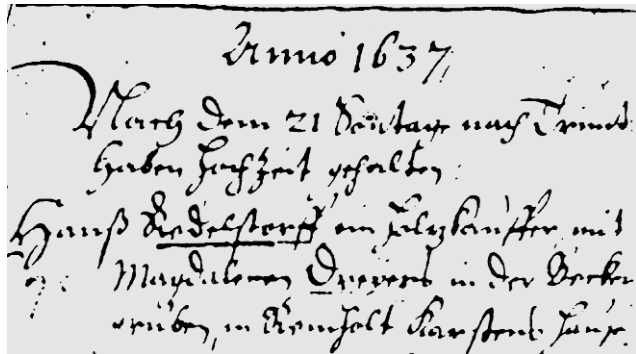 Anno 1637
Nach dem 21 Sontage nach Trinit:
haben hochzeit gehalten:
Hanß Riedelstorff ein saltzkauffer mit
Magdalenen Dreyers in der Becker
gruben, in Reinholt Karstens hause.